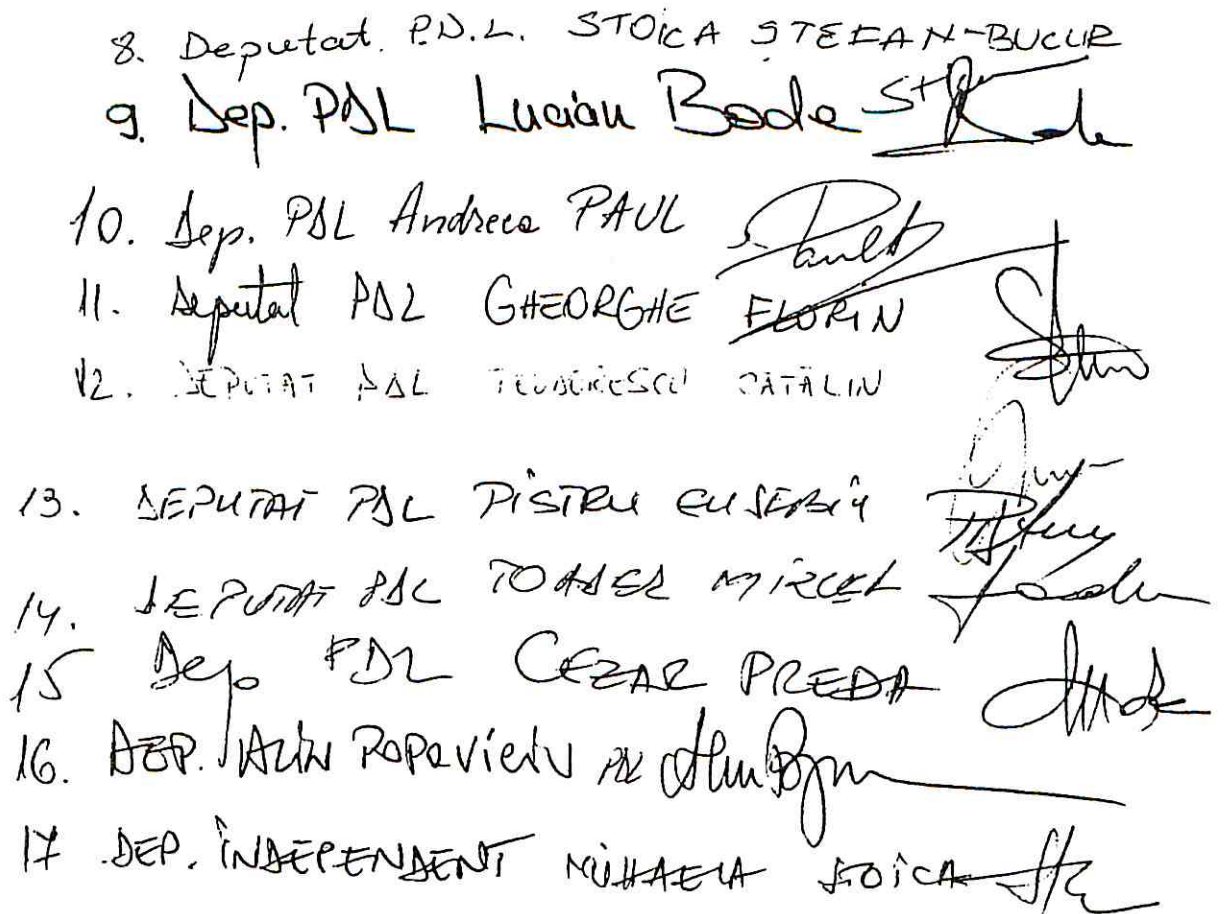 8. Deputat P.D.L. STOICA ŞTEFAN-BUCUR
9. Dep. PDL Lucian Bode
10. Dep. PDL Andreea PAUL
11. Deputat PDL GHEORGHE FLORIN
12. DEPUTAT PDL TEODORESCU CĂTĂLIN
13. DEPUTAT PDL PISTRU EUSEBIU
14. DEPUTAT PDL TOADER MIRCEA
15 Dep PDL CEZAR PREDA
16. DEP. ALIN POPOVICIU PDL
17 DEP. INDEPENDENT MIHAELA STOICA